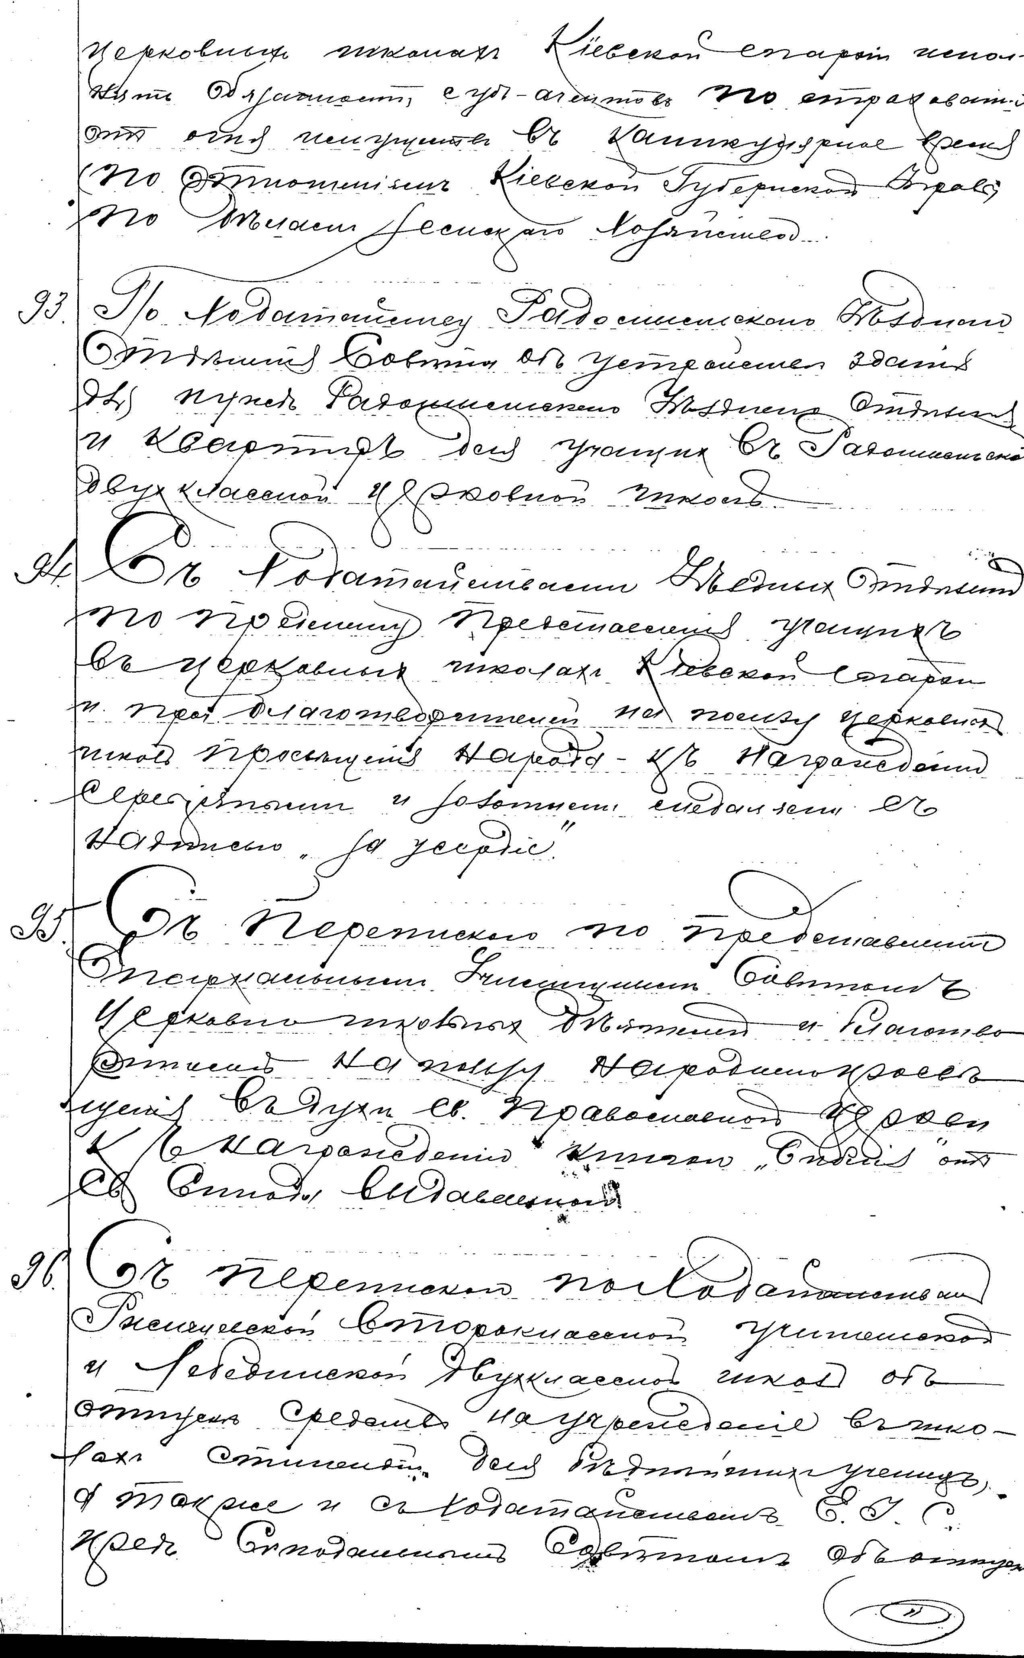 церковныхъ школахъ Кіевской епархіи испол-
нять обязанности субъ-агентовъ по страхован.
отъ огня имущества въ каникулярное время
(по отношеніямъ Кіевской Губернской Управы
по дѣламъ Земскаго Хозяйства).
93. По Ходатайству Радомысльскаго Уѣзднаго
Отдѣленія Совѣта объ устройствѣ зданія
для нуждъ Радомысльскаго Уѣзднаго Отдѣленія
и квартиръ для учащихъ въ Радомысльской
двухклассной церковной школѣ.
94. Съ Ходатайствами Уѣздныхъ Отдѣленій
по предмету представленія учащихъ
въ церковныхъ школахъ Кіевской епархіи
и проч. благотворителей на пользу церковныхъ
школъ просвѣщенія народа - къ награжденію
серебряными и золотыми медалями съ
надписью „за усердіе".
95. Съ Перепиской по представленію
Епархіальнымъ Училищнымъ Совѣтомъ
Церковно школьныхъ дѣятелей и благотво
рителей на пользу народнаго просвѣ
щенія въ духѣ св. Православной Церкви
къ награжденію книгою „Библія" отъ
Св. Синода выдаваемой
96. Съ перепиской по ходатайствамъ
Ржищевской Второклассной учительской
и Лебединской двухклассной школъ объ
отпускѣ средствъ на учрежденіе въ шко-
лахъ стипендій для бѣднѣйшихъ ученицъ,
а также и съ ходатайствомъ Е. У. С.
предъ Синодальнымъ Совѣтомъ объ отпускѣ